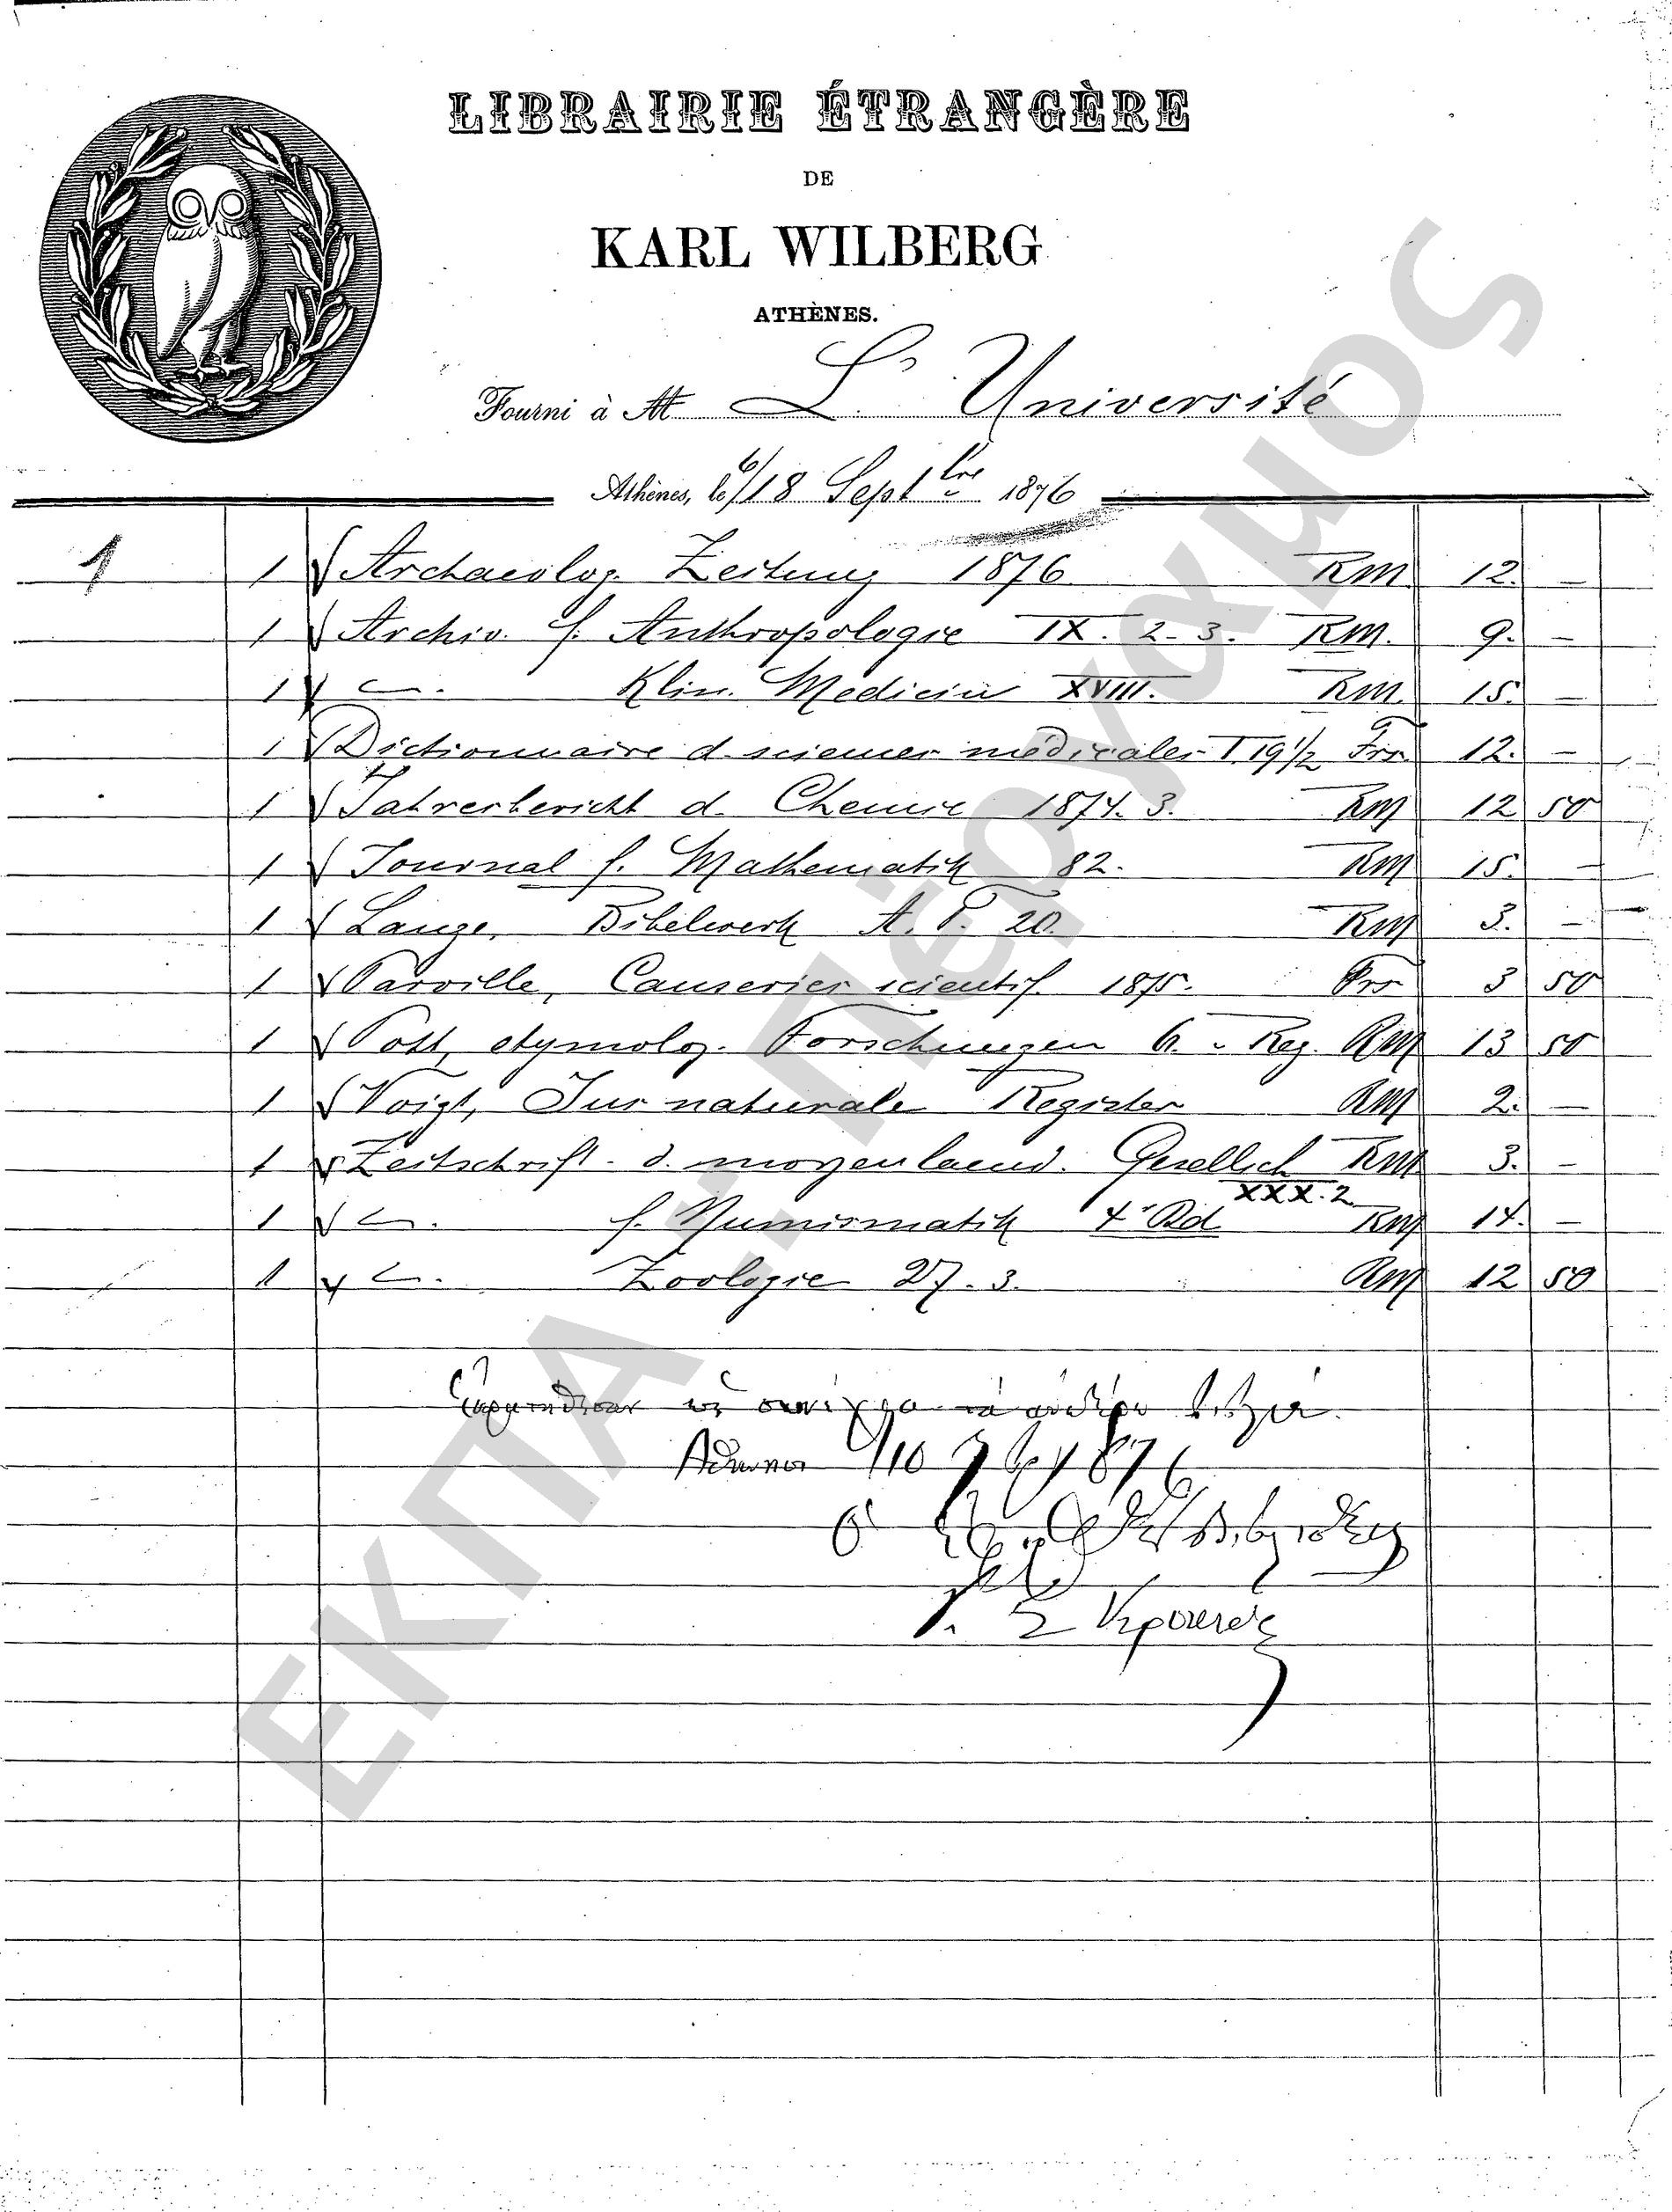 LIBRAIRIE ÉTRANGÈRE
DE
KARL WILBERG
ATHÈNES.
Fourni à M L' Université
Athènes, le 6/18 Septbre 1876
1 1 Archaeolog. Zeitung 1876 RM 12. –
1 Archiv. f. Anthropologie IX. 2-3. RM. 9. –
1 Klin. Medicin XVIII. RM. 15. –
1 Dictionnaire d. sciences médicales T. 19 1/2 Frs 12. –
1 Jahresbericht d. Chemie 1874. 3. RM 12 50
1 Journal f. Mathematik 82. RM 15. –
1 Lange, Bibelwerk A. T. 20. RM 3. –
1 Parville, Causeries scientif. 1875. Frs 3 50
1 Pott, etymolog. Forschungen 6. Reg. RM 13 50
1 Voigt, Jus naturale Register RM 2. –
1 Zeitschrift d. morgenlaend. Gesellsch XXX.2 RM 3. –
1 f. Numismatik 4r Bd RM 14. –
1 Zoologie 27. 3. RM 12 50
τὰ βιβλία.
10 7br 1876
Ὁ
Σ
ΕΚΠΑ :: Πέργαμος